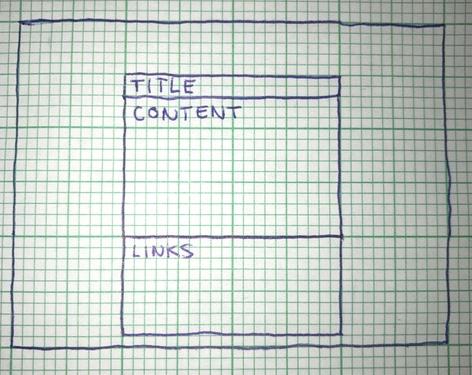 TITLE
CONTENT
LINKS